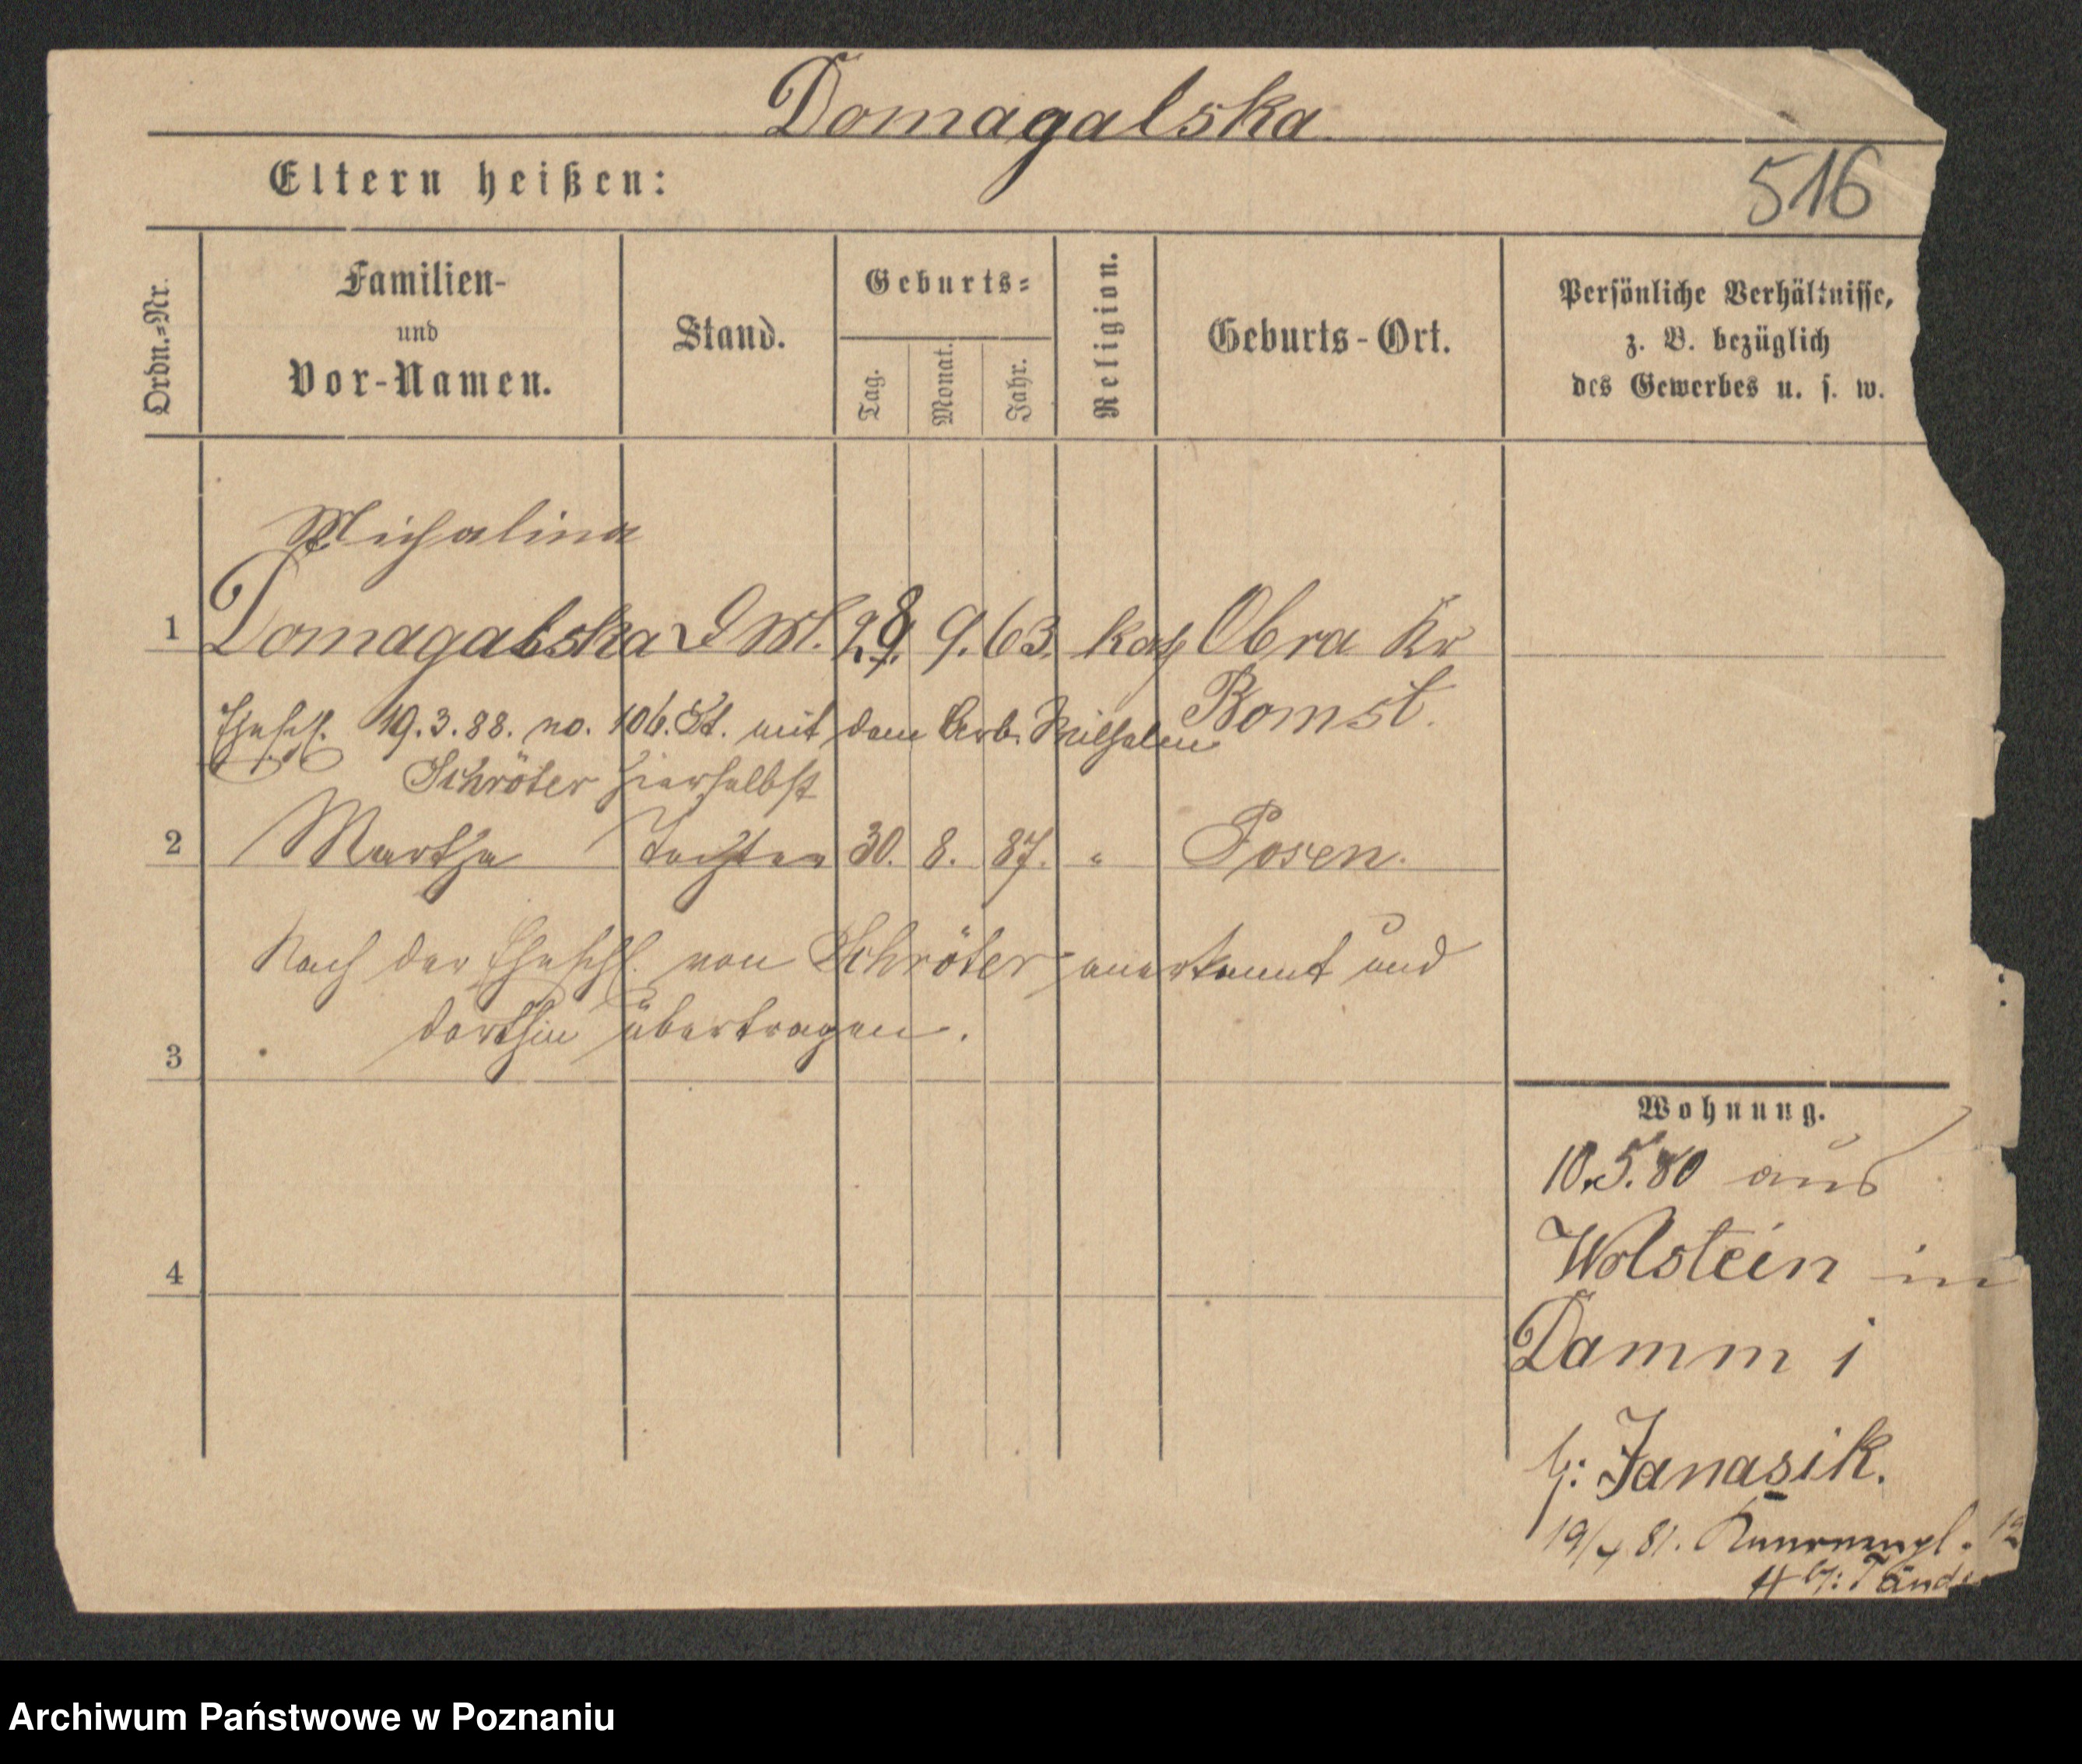 Domagalska
Eltern heißen:
516
Ordn.=Nr.
Familien-
und
Vor-Namen.
Stand.
Geburts=
Tag.
Monat.
Jahr.
Religion.
Geburts-Ort.
Persönliche Verhältnisse,
z. B. bezüglich
des Gewerbes u. s. w.
Michalina
1 Domagalska D M. 9. 63. kath Obra Kr
Bomst.
Ehschl. 19.3.88. no. 106. St. mit dem Arb. Wilhelm
Schröter hierselbst
2 Martha Tochter 30. 8. 87. " Posen.
Nach der Eheschl. von Schröter anerkannt und
dorthin übertragen.
3
4
Wohnung.
10.5.80 aus
Wolstein in
Damm 1
b: Janasik.
19/4 81.